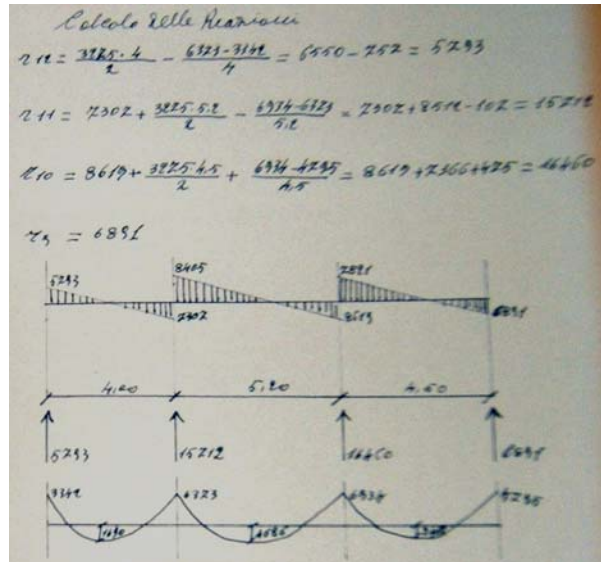 Calcolo delle Reazioni
r12 = 3275·4/2 - 6373-3342/4 = 6550-757 = 5793
r11 = 7307 + 3275·5.2/2 - 6934-6373/5.2 = 7307+8512-107 = 15712
r10 = 8619 + 3275·4,5/2 + 6934-4795/4.5 = 8619+7366+475 = 16460
r9 = 6891
5793 8405 7891
7307 8619 6891
4,00 5,20 4,50
5793 15712 16460 6891
3342 6373 6934 4795